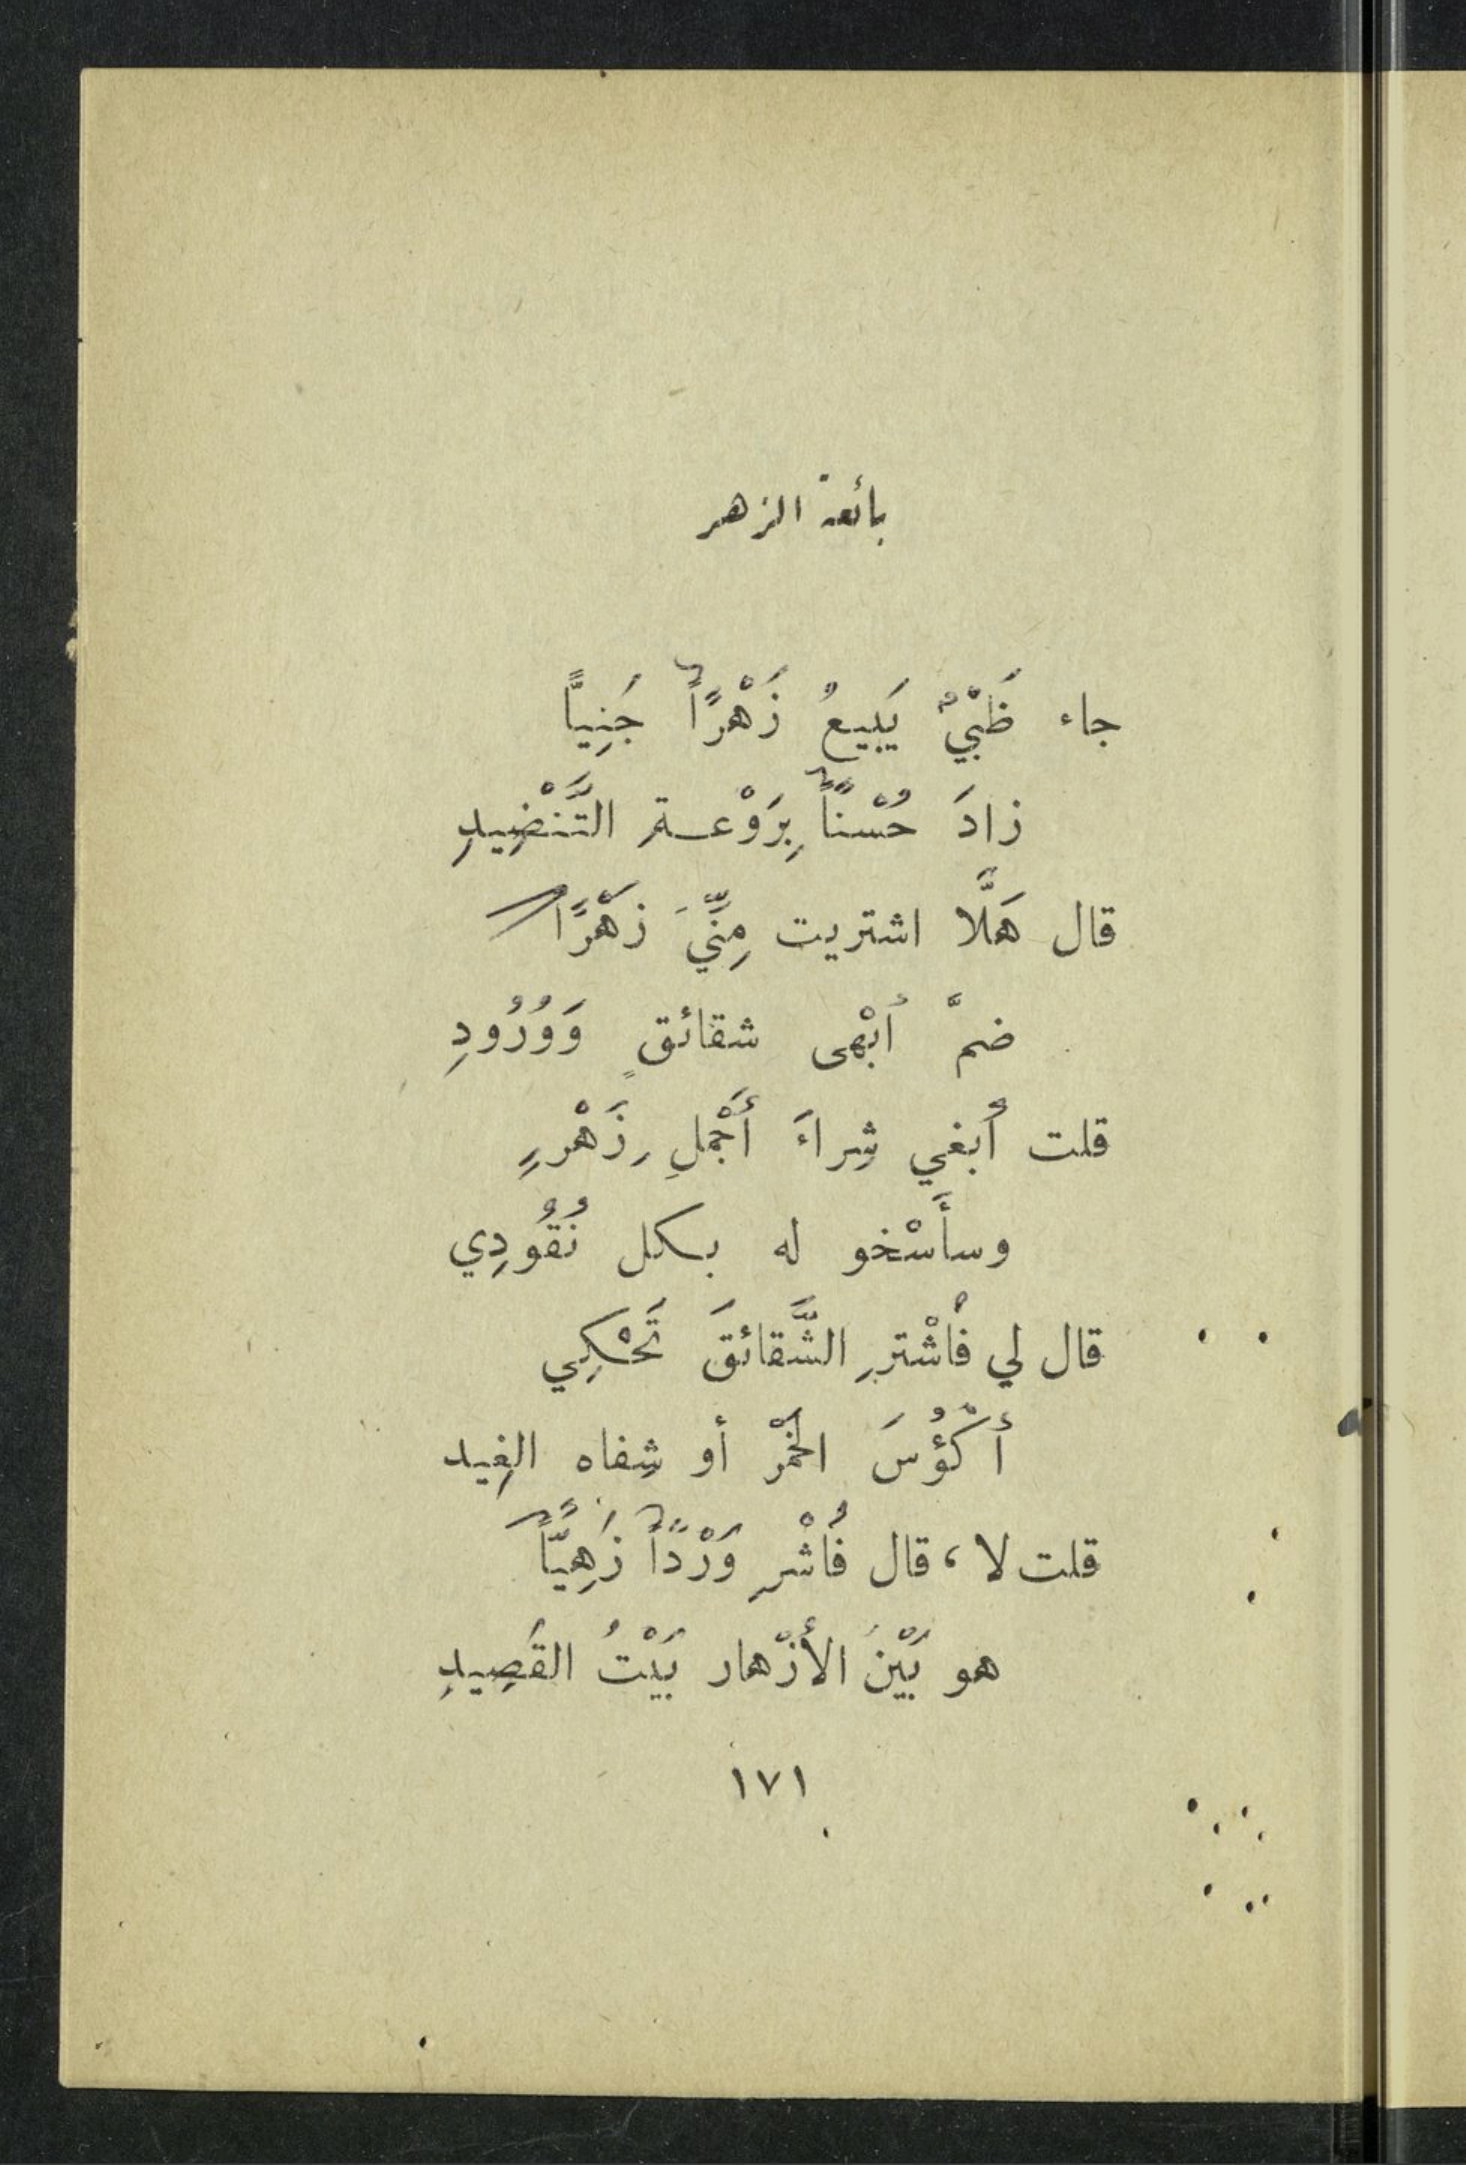 بائعة الزهر
جاء ظَبْيٌ يَبِيعُ زَهْرًا جَنِيًّا
زادَ حُسْنًا بِرَوْعـةِ التَّنْضِيدِ
قال هَلَّا اشتريت مِنِّيَ زَهْرًا
ضمَّ أَبْهى شقائقٍ وَوُرُودِ
قلت أَبغي شِراءَ أَجْمَلِ زَهْرٍ
وسأَسْخو له بكل نُقُودِي
قال لي فَاشْترِ الشَّقائقَ تَحْكِي
أَكْؤُسَ الخَمْر أو شِفاه الغِيد
قلت لا، قال فَاشْرِ وَرْدًا زَهِيًّا
هو بَيْنَ الأَزْهار بَيْتُ القَصِيدِ
١٧١